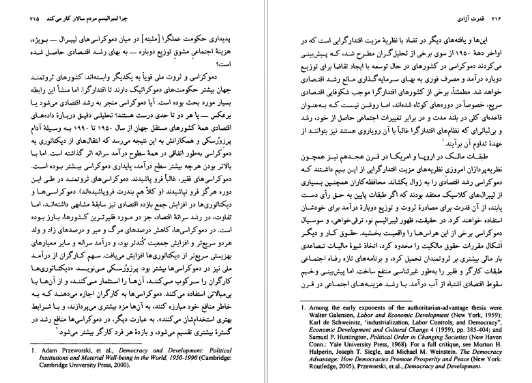 ۲۱۶ قدرت آزادی
این‌ها و یافته‌های دیگر در تضاد با نظریهٔ مزیت اقتدارگرایی است که در
اواخر دههٔ ۱۹۵۰ از سوی برخی از تحلیل‌گران مطرح شد، که پیش‌بینی
می‌کردند دموکراسی در کشورهای در حال توسعه با ایجاد تقاضا برای توزیع
دوباره درآمد و مصرف فوری به بهای سرمایه‌گذاری مانع رشد اقتصادی
خواهد شد. مطمئناً، برخی از کشورهای اقتدارگرا موجب شکوفایی اقتصادی
سریع، خصوصاً در دوره‌های کوتاه شده‌اند، اما روشن نیست که به‌عنوان
قاعده‌ای کلی در بلند مدت و در برابر تغییرات اجتماعی حاصل از خود، رشد
و بی‌ثباتی‌ای که نظام‌های اقتدارگرا غالباً با آن رویاروی هستند نیز بتوانند از
عهدهٔ تداوم آن برآیند.¹
طبقات مالک در اروپا و امریکا در قرن هجدهم نیز همچون
نظریه‌پردازان امروزی نظریه‌های مزیت اقتدارگرایی از این بیم داشتند که
دموکراسی رشد اقتصادی را به زوال بکشاند. محافظه‌کاران همچنین بسیاری
از لیبرال‌های کلاسیک معتقد بودند که اگر طبقات پایین به حق رأی دست
یابند، از آن قدرت برای مصادرهٔ ثروت و توزیع دوبارهٔ درآمد برای خودشان
استفاده خواهند کرد. در حقیقت، ظهور لیبرالیسم نو، ترقی‌خواهی، و سوسیال
دموکراسی برخی از این هراس‌ها را واقعیت بخشید. حقوق کار و دیگر
اشکال مقررات حقوق مالکیت را محدود کرد، اتخاذ شیوهٔ مالیات تصاعدی
بار مالی بیشتری بر ثروتمندان تحمیل کرد، و برنامه‌های تازه رفاه اجتماعی
طبقات کارگر و فقیر را به‌طور غیرتناسبی منتفع ساخت. اما پیش‌بینی وخیم
سقوط اقتصادی اشتباه از آب درآمد. با رشد هزینه‌های اجتماعی در قرن
1. Among the early exponents of the authoritarian-advantage thesis were
Walter Galenson, Labor and Economic Development (New York, 1959);
Karl de Schweinitz, "Industrialization, Labor Controls, and Democracy",
Economic Development and Cultural Change 4 (1959), pp. 385-404; and
Samuel P. Huntington, Political Order in Changing Societies (New Haven
Conn.: Yale University Press, 1968). For a full critique, see Morton H.
Halperin, Joseph T. Siegle, and Michael M. Weinstein. The Democracy
Advantage: How Democracies Promote Prosperity and Peace (New York:
Routledge, 2005), Przeworski, et al., Democracy and Development.
چرا لیبرالیسم مردم سالار کار می‌کند
پدیداری حکومت عملگرا [مثبته] در میان دموکراسی‌های لیبرال – بویژه،
هزینهٔ اجتماعی مشوق توزیع دوباره – به بهای رشد اقتصادی حاصل شده
است؟
دموکراسی و ثروت ملی قویاً به یکدیگر وابسته‌اند. کشورهای ثروتمند
جهان بیشتر حکومت‌های دموکراتیک دارند تا اقتدارگرا. اما منشأ این رابطه
بسیار مورد بحث بوده است. آیا دموکراسی منجر به رشد اقتصادی می‌شود یا
برعکس – یا هر دو تا حدی درست هستند؟ تحلیلی دقیق دربارهٔ داده‌های
اقتصادی همهٔ کشورهای مستقل جهان از سال ۱۹۵۰ تا ۱۹۹۰ به وسیلهٔ آدام
پرزورسکی و همکارانش به این نتیجه می‌رسد که انتقال‌های از دیکتاتوری به
دموکراسی به‌طور اتفاقی در همهٔ سطوح درآمد سرانه اثر گذاشته است. اما با
بالاتر بودن هرچه بیشتر سطح درآمد، پایداری دموکراسی بیشتر بوده است.
دموکراسی‌های فقیر، غالباً فرو پاشیدند. دموکراسی‌های ثروتمند در طی این
دوره هرگز فرو نپاشیدند (و کلاً هم بندرت فروپاشیده‌اند). دموکراسی‌ها و
دیکتاتوری‌ها در افزایش جمع بازده اقتصادی نیز سابقهٔ مشابهی داشته‌اند، اما
تفاوت، در رشد سرانهٔ اقتصاد، جز در مورد فقیرترین کشورها، بارز بوده
است. در دموکراسی‌ها، کاهش درصدهای مرگ و میر و درصدهای زاد و ولد
هردو سریع‌تر و افزایش جمعیت کُندتر بود، و درآمد سرانه و سایر معیارهای
بهزیستی سریع‌تر از دیکتاتوری‌ها افزایش می‌یافت. سهم کارگران از درآمد
ملی نیز در دموکراسی‌ها بیشتر بود؛ پرزورسکی می‌نویسد «دیکتاتوری‌ها
کارگران را سرکوب می‌کنند، آن‌ها را استثمار می‌کنند، و از آن‌ها با
بی‌مبالاتی استفاده می‌کنند. دموکراسی‌ها به کارگران اجازه می‌دهند که به
خاطر منافع خود مبارزه کنند، به آن‌ها مزد بیشتری می‌پردازند، و با شرایط
بهتری استخدام‌شان می‌کنند». به عبارت دیگر، در دموکراسی‌ها منافع رشد در
گسترهٔ بیشتری تقسیم می‌شود، و بازدهٔ هر فرد کارگر بیشتر می‌شود.¹
1. Adam Przeworski, et al., Democracy and Development: Political
Institutions and Material Well-being in the World, 1950-1990 (Cambridge:
Cambridge University Press, 2000).